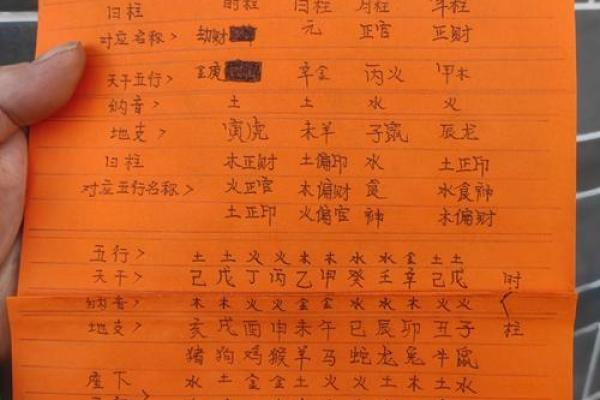 日柱 时柱 日柱 月柱 年柱
对应名称> 劫财 元 正官 正财
天干五行> 金庚 辛金 丙火 甲木
纳音> 土 土 水 火
地支> 寅虎 未羊 子鼠 辰龙
日柱 木正财 土偏印 水 土正印
对应五行名称> 火正官 木偏财 食 水食神
土正印 火偏官 神 木偏财
五行> 土 土 火 火 木 木 水 水 金 土 土
天干> 己 戊 丁 丙 乙 甲 癸 壬 辛 己 戊 时
纳音> 木 木 火 火 金 金 水 水 木 火 火
地支> 亥 戌 酉 申 未 午 巳 辰 卯 丑 子 柱
猪 狗 鸡 猴 羊 马 蛇 龙 兔 牛 鼠
座下 水 土 金 金 土 火 火 土 木 土 水